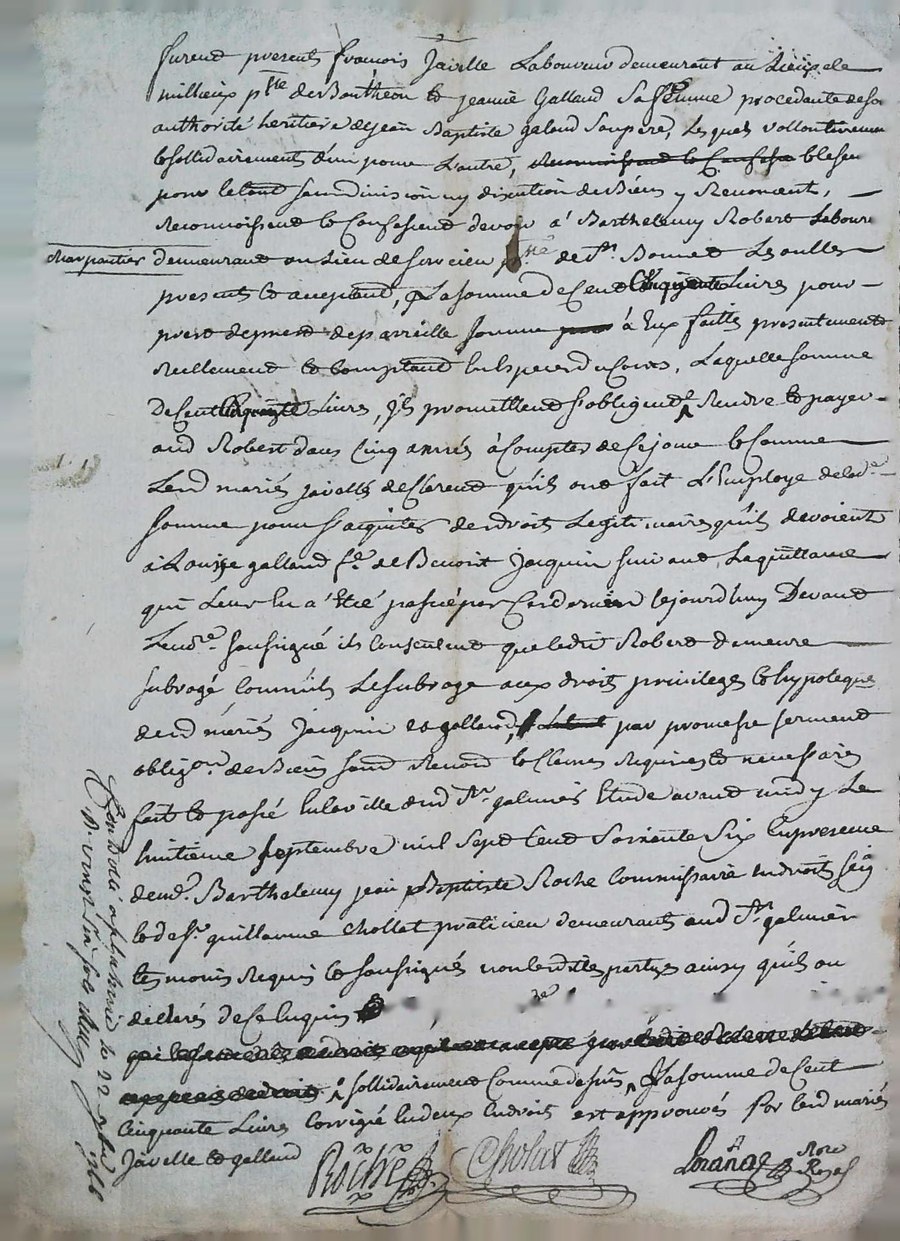 furent presents françois Javelle Laboureur demeurant au Lieu de
millieux p.sse de Bonthéon et jeanne Galland Sa femme procedante de son
authorité heritiere de jean Baptiste galand Son pere, Lesquels vollontairement
et sollidairement L'un pour L'autre, reconnoissent et Confess et le seul
pour le tout sans division ny discution de Biens y Renoncent,
Reconnoissent et Confessent devoir à Barthelemy Robert Laboure
charpantier demeurant au Lieu de p.sse de St. Bonnet Les oulles
present et acceptant, La somme de Cent Cinquante Livres pour
prest de pareille somme à Eux faitte presentement
Reellement et Comptant en Espece du Cours, Laquelle somme
de Cent Cinquante Livres, ils promettent s'obligent Rendre et payer
aud Robert dans Cinq années à Compter de Ce jour et Comme
Lesd mariés javelle declarent qu'ils ont fait L'Employe de lad.e
somme pour s'acquiter des droits Legitimaires qu'ils devoient
à Louise galland f.e de Benoit Jacquin suivant La quittance
qui Leur en a Eté passée par Ce dernier cejourd'huy Devant
Le no.re soussigné ils consentent que ledit Robert demeure
subrogé comm'ils Le subroge aux droits privileges et hypoteques
desd mariés Jacquin et galland, par promesse serment
oblig.on de Biens soumd Renond et Clauses Requises et necessaires
fait et passé En la ville dud St. galmier Etude avant midy Le
huitieme septembre mil sept Cent soixante six En presence
de me. Barthelemy jean Baptiste Roche Commissaire En droits seig
et de sr. guillaume Chollat praticien demeurants aud St. galmier
témoins Requis et soussignés non lesdittes partyes ainsy qu'ils ont
declarés de Ce Enquis
sollidairement Comme dessus, La somme de Cent
Cinquante Livres Corrigé En deux Endroits est approuvés par lesd mariés
Javelle et galland
Roche Chollat
Not.
Royal
Controlé à St galmier le 22 7bre 1766